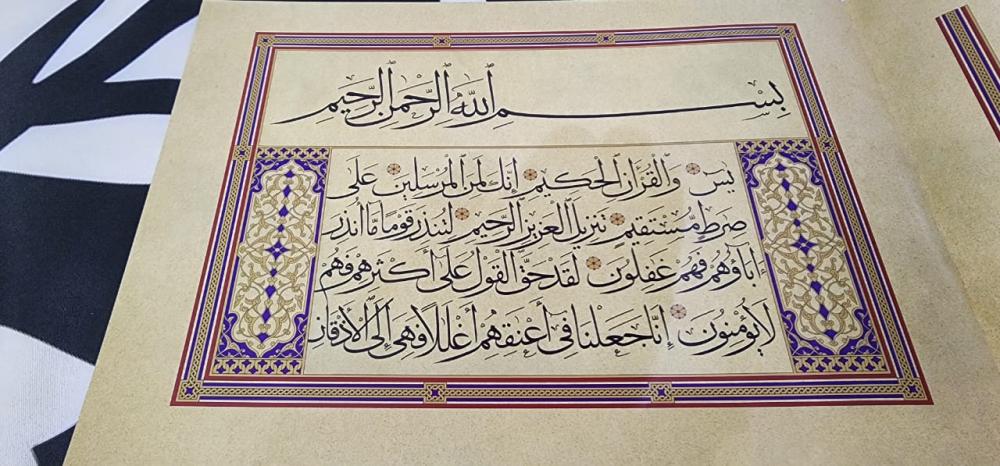 بِسْمِ ٱللَّهِ ٱلرَّحْمَٰنِ ٱلرَّحِيمِ
يسٓ وَٱلْقُرْءَانِ ٱلْحَكِيمِ إِنَّكَ لَمِنَ ٱلْمُرْسَلِينَ عَلَىٰ
صِرَٰطٍ مُّسْتَقِيمٍ تَنزِيلَ ٱلْعَزِيزِ ٱلرَّحِيمِ لِتُنذِرَ قَوْمًا مَّا أُنذِرَ
ءَابَاؤُهُمْ فَهُمْ غَٰفِلُونَ لَقَدْ حَقَّ ٱلْقَوْلُ عَلَىٰ أَكْثَرِهِمْ فَهُمْ
لَا يُؤْمِنُونَ إِنَّا جَعَلْنَا فِى أَعْنَٰقِهِمْ أَغْلَٰلًا فَهِىَ إِلَى ٱلْأَذْقَانِ